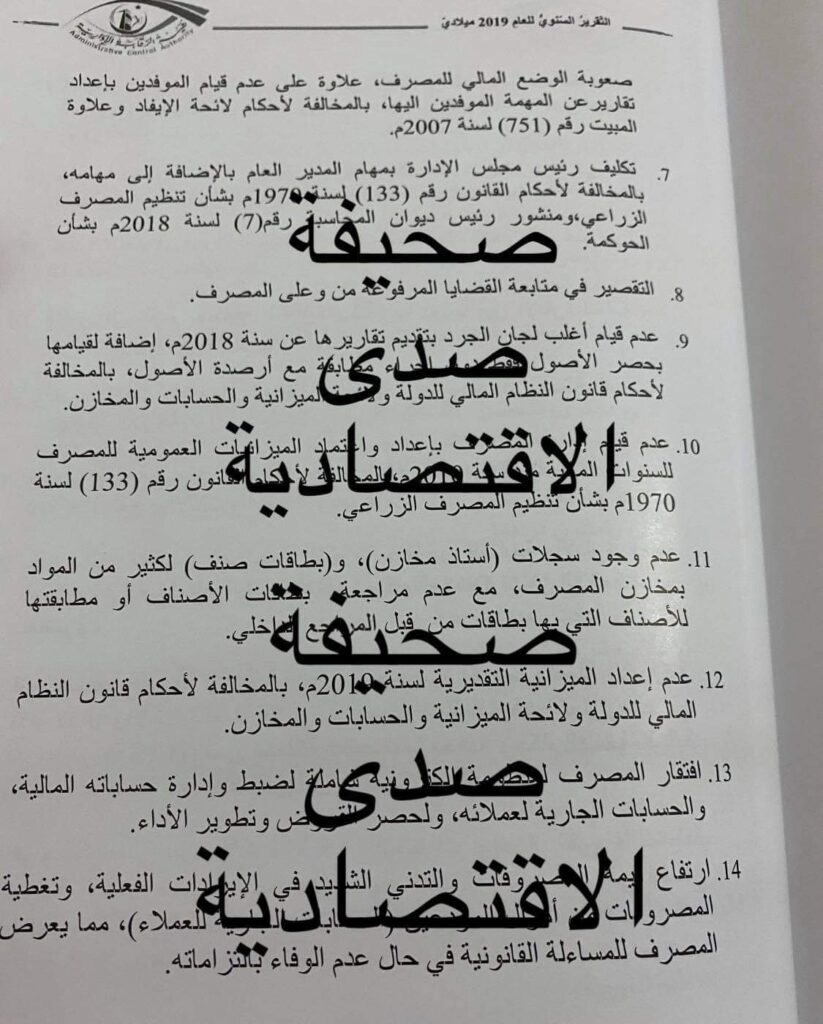 التقرير السنوي للعام 2019 ميلادي
Administrative Control Authority
صعوبة الوضع المالي للمصرف، علاوة على عدم قيام الموفدين بإعداد
تقارير عن المهمة الموفدين اليها، بالمخالفة لأحكام لائحة الإيفاد وعلاوة
المبيت رقم (751) لسنة 2007م.
7. تكليف رئيس مجلس الإدارة بمهام المدير العام بالإضافة إلى مهامه،
بالمخالفة لأحكام القانون رقم (133) لسنة 1970م بشأن تنظيم المصرف
الزراعي،ومنشور رئيس ديوان المحاسبة رقم(7) لسنة 2018م بشأن
الحوكمة.
صحيفة
8. التقصير في متابعة القضايا المرفوعة من وعلى المصرف.
9. عدم قيام أغلب لجان الجرد بتقديم تقاريرها عن سنة 2018م، إضافة لقيامها
صدى
بحصر الأصول فقط دون إجراء مطابقة مع أرصدة الأصول، بالمخالفة
لأحكام قانون النظام المالي للدولة ولائحة الميزانية والحسابات والمخازن.
10. عدم قيام إدارة المصرف بإعداد واعتماد الميزانيات العمومية للمصرف
الاقتصادية
للسنوات المالية منذ سنة 2010م، بالمخالفة لأحكام القانون رقم (133) لسنة
1970م بشأن تنظيم المصرف الزراعي.
11. عدم وجود سجلات (أستاذ مخازن)، و(بطاقات صنف) لكثير من المواد
بمخازن المصرف، مع عدم مراجعة بطاقات الأصناف أو مطابقتها
للأصناف التي بها بطاقات من قبل المراجع الداخلي.
صحيفة
12. عدم إعداد الميزانية التقديرية لسنة 2019م، بالمخالفة لأحكام قانون النظام
المالي للدولة ولائحة الميزانية والحسابات والمخازن.
13. افتقار المصرف لمنظومة الكترونية شاملة لضبط وإدارة حساباته المالية،
صدى
والحسابات الجارية لعملائه، ولحصر القروض وتطوير الأداء.
14. ارتفاع قيمة المصروفات والتدني الشديد في الإيرادات الفعلية، وتغطية
الاقتصادية
المصروفات من أموال المودعين (الحسابات الجارية للعملاء)، مما يعرض
المصرف للمساءلة القانونية في حال عدم الوفاء بالتزاماته.